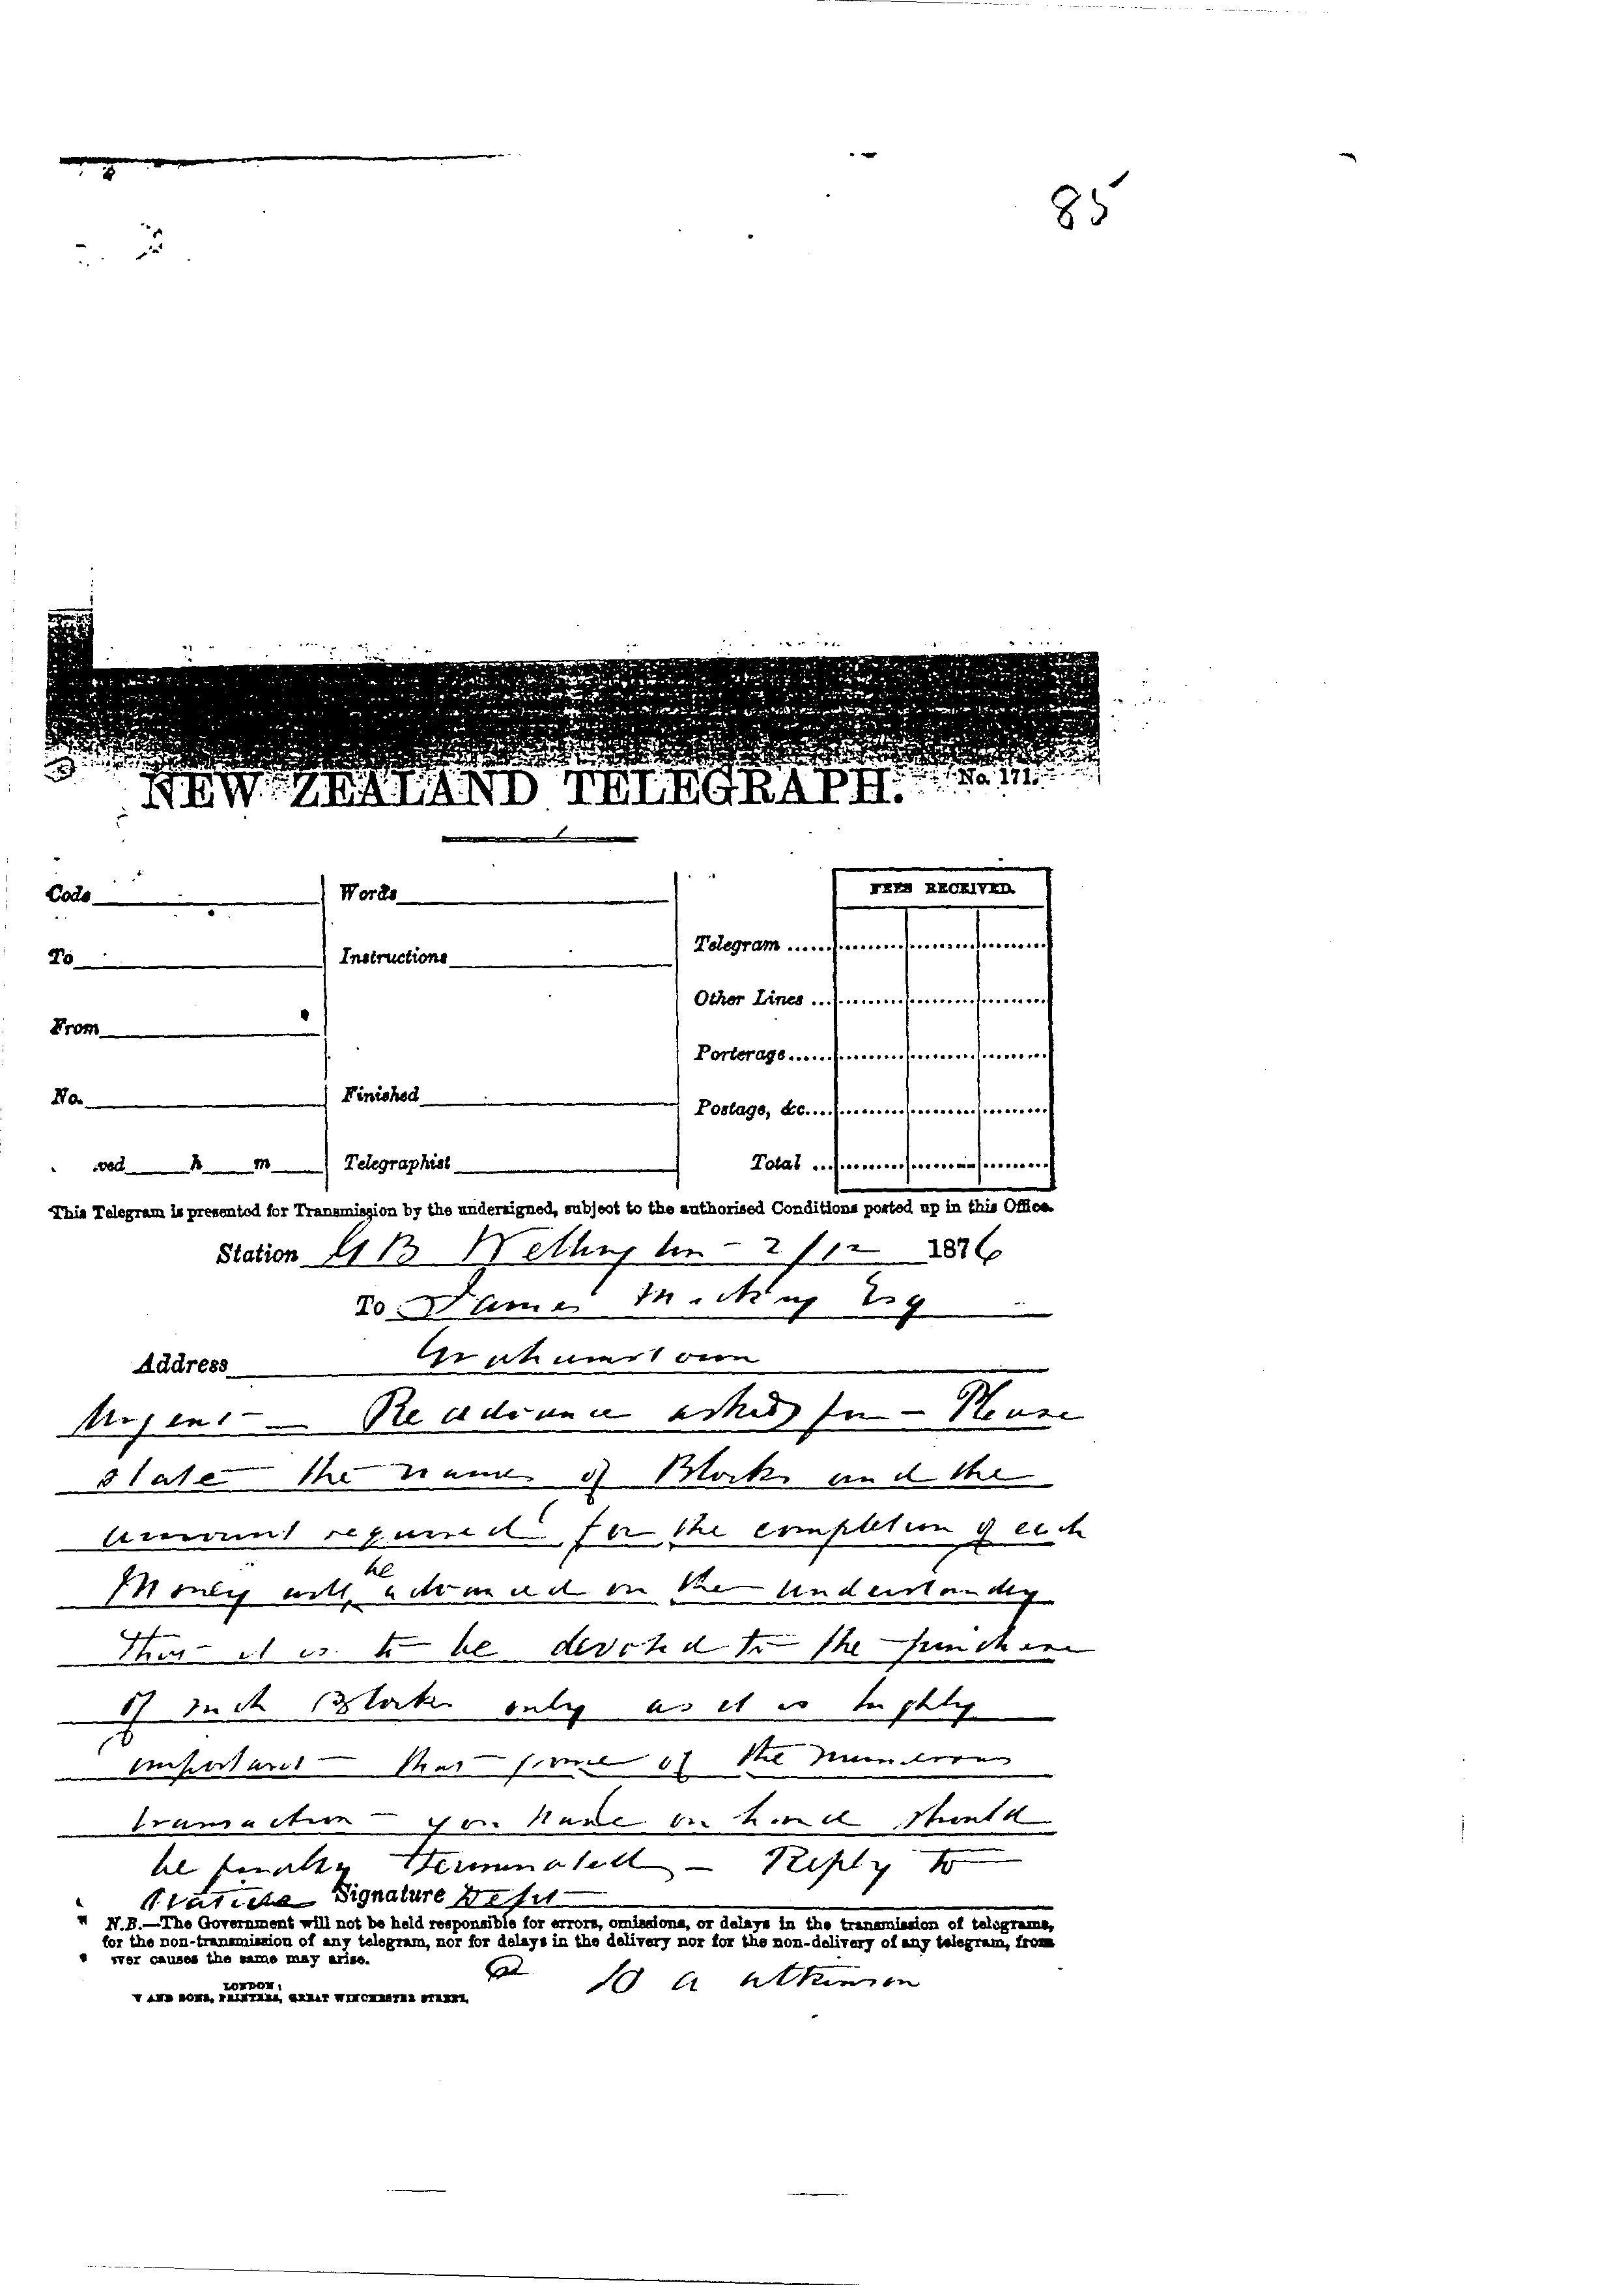 85
NEW ZEALAND TELEGRAPH. No. 171.
FEES RECEIVED.
Code Words
Telegram ......
To Instructions
Other Lines ...
From
Porterage......
No. Finished
Postage, &c....
ved h m Telegraphist
Total ...
This Telegram is presented for Transmission by the undersigned, subject to the authorised Conditions posted up in this Office.
Station GB Wellington - 2/12 1876
To James Mackay Esq
Address Grahamstown
Urgent — Re advance asked for — Please
state the names of Blocks and the
amount required for the completion of each
Money will be advanced on the understanding
that it is to be devoted to the purchase
of such Blocks only as it is highly
important that some of the numerous
transactions you have on hand should
be finally terminated — Reply to
Native Signature Dept
N.B.—The Government will not be held responsible for errors, omissions, or delays in the transmission of telegrams,
for the non-transmission of any telegram, nor for delays in the delivery nor for the non-delivery of any telegram, from
ver causes the same may arise.
atkinson
LONDON:
Y AND SONS, PRINTERS, GREAT WINCHESTER STREET.